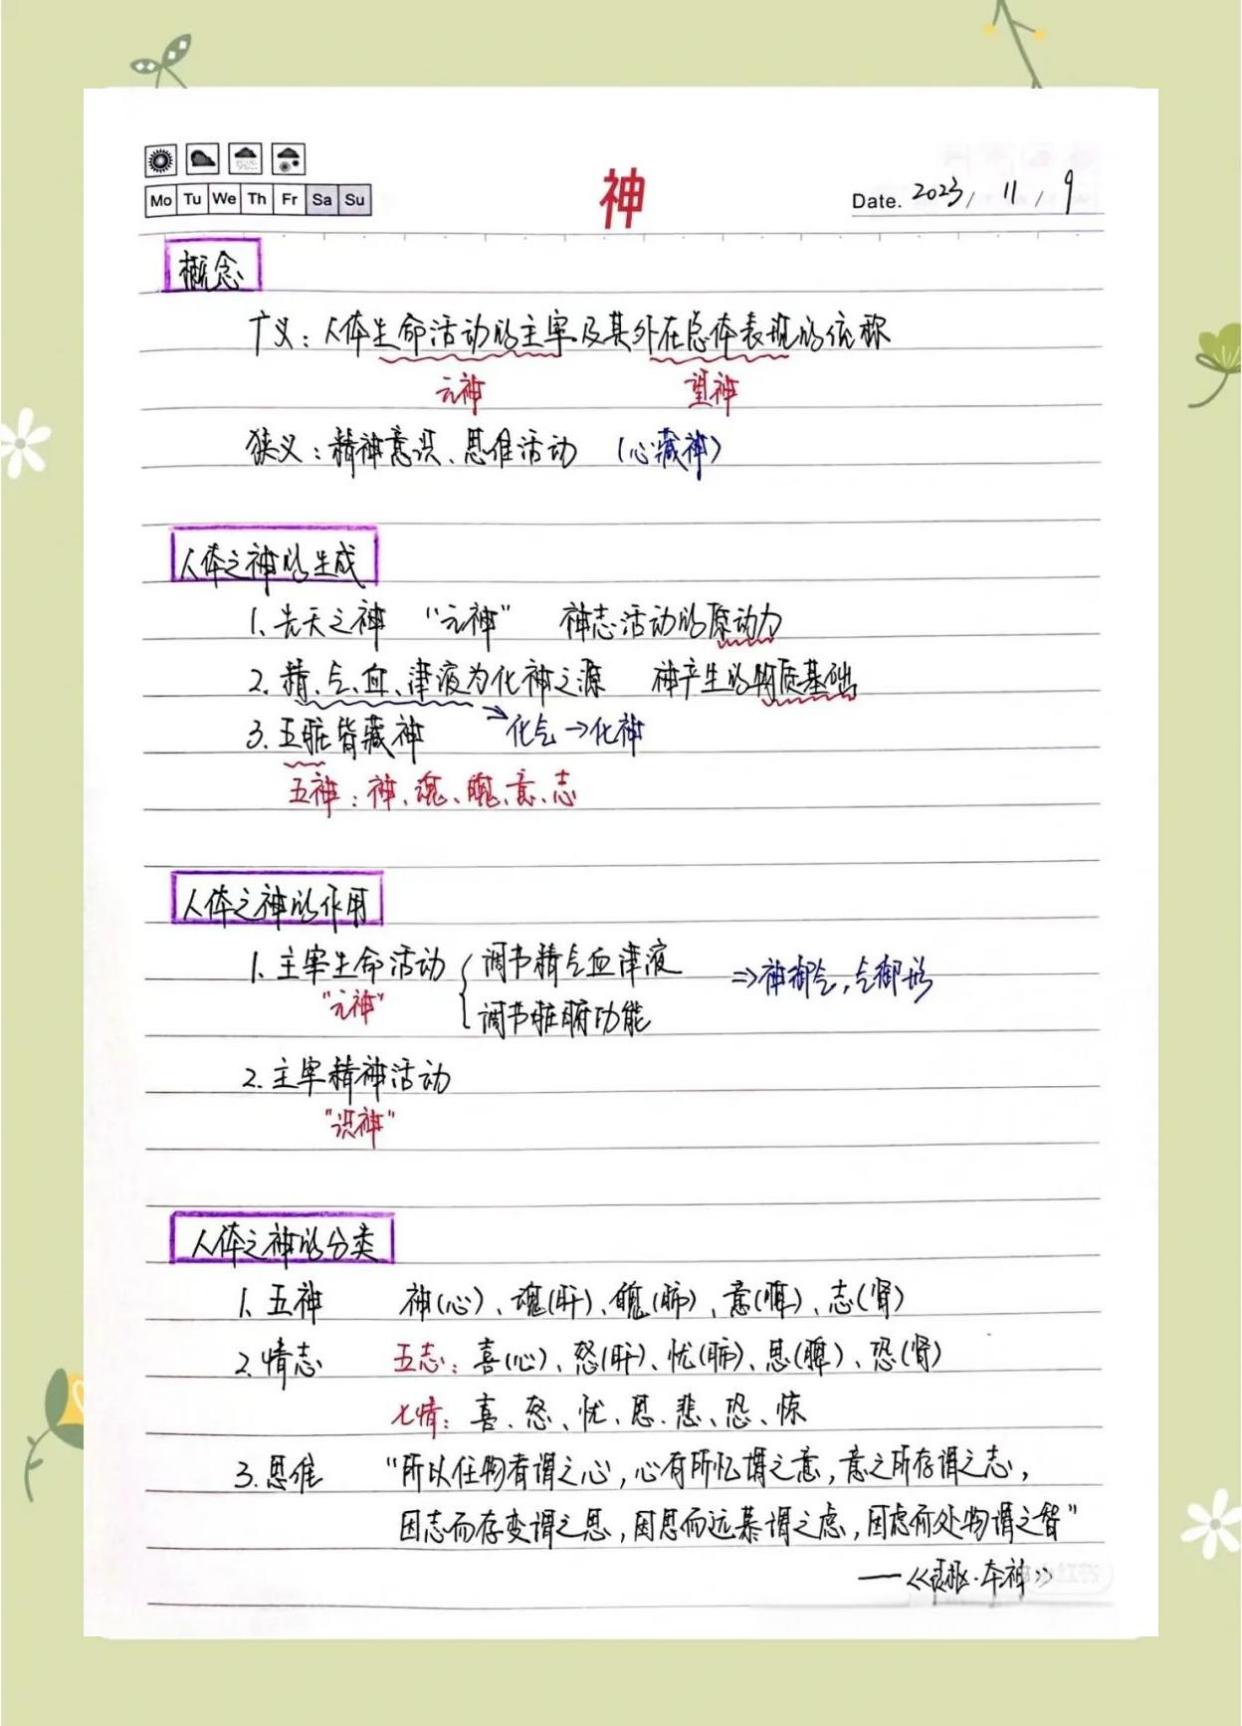 神
Mo Tu We Th Fr Sa Su
Date. 2023/11/9
概念
广义：人体生命活动的主宰及其外在总体表现的统称
元神 望神
狭义：精神意识、思维活动 (心藏神)
人体之神的生成
1、先天之神 “元神” 神志活动的原动力
2. 精、气、血、津液为化神之源 神产生的物质基础
3. 五脏皆藏神 →化气→化神
五神：神、魂、魄、意、志
人体之神的作用
1. 主宰生命活动 { 调节精气血津液 ⇒神御气，气御形
“元神” 调节脏腑功能
2. 主宰精神活动
“识神”
人体之神的分类
1. 五神 神(心)、魂(肝)、魄(肺)、意(脾)、志(肾)
2. 情志 五志：喜(心)、怒(肝)、忧(肺)、思(脾)、恐(肾)
七情：喜、怒、忧、思、悲、恐、惊
3. 思维 “所以任物者谓之心，心有所忆谓之意，意之所存谓之志，
因志而存变谓之思，因思而远慕谓之虑，因虑而处物谓之智”
——《灵枢·本神》